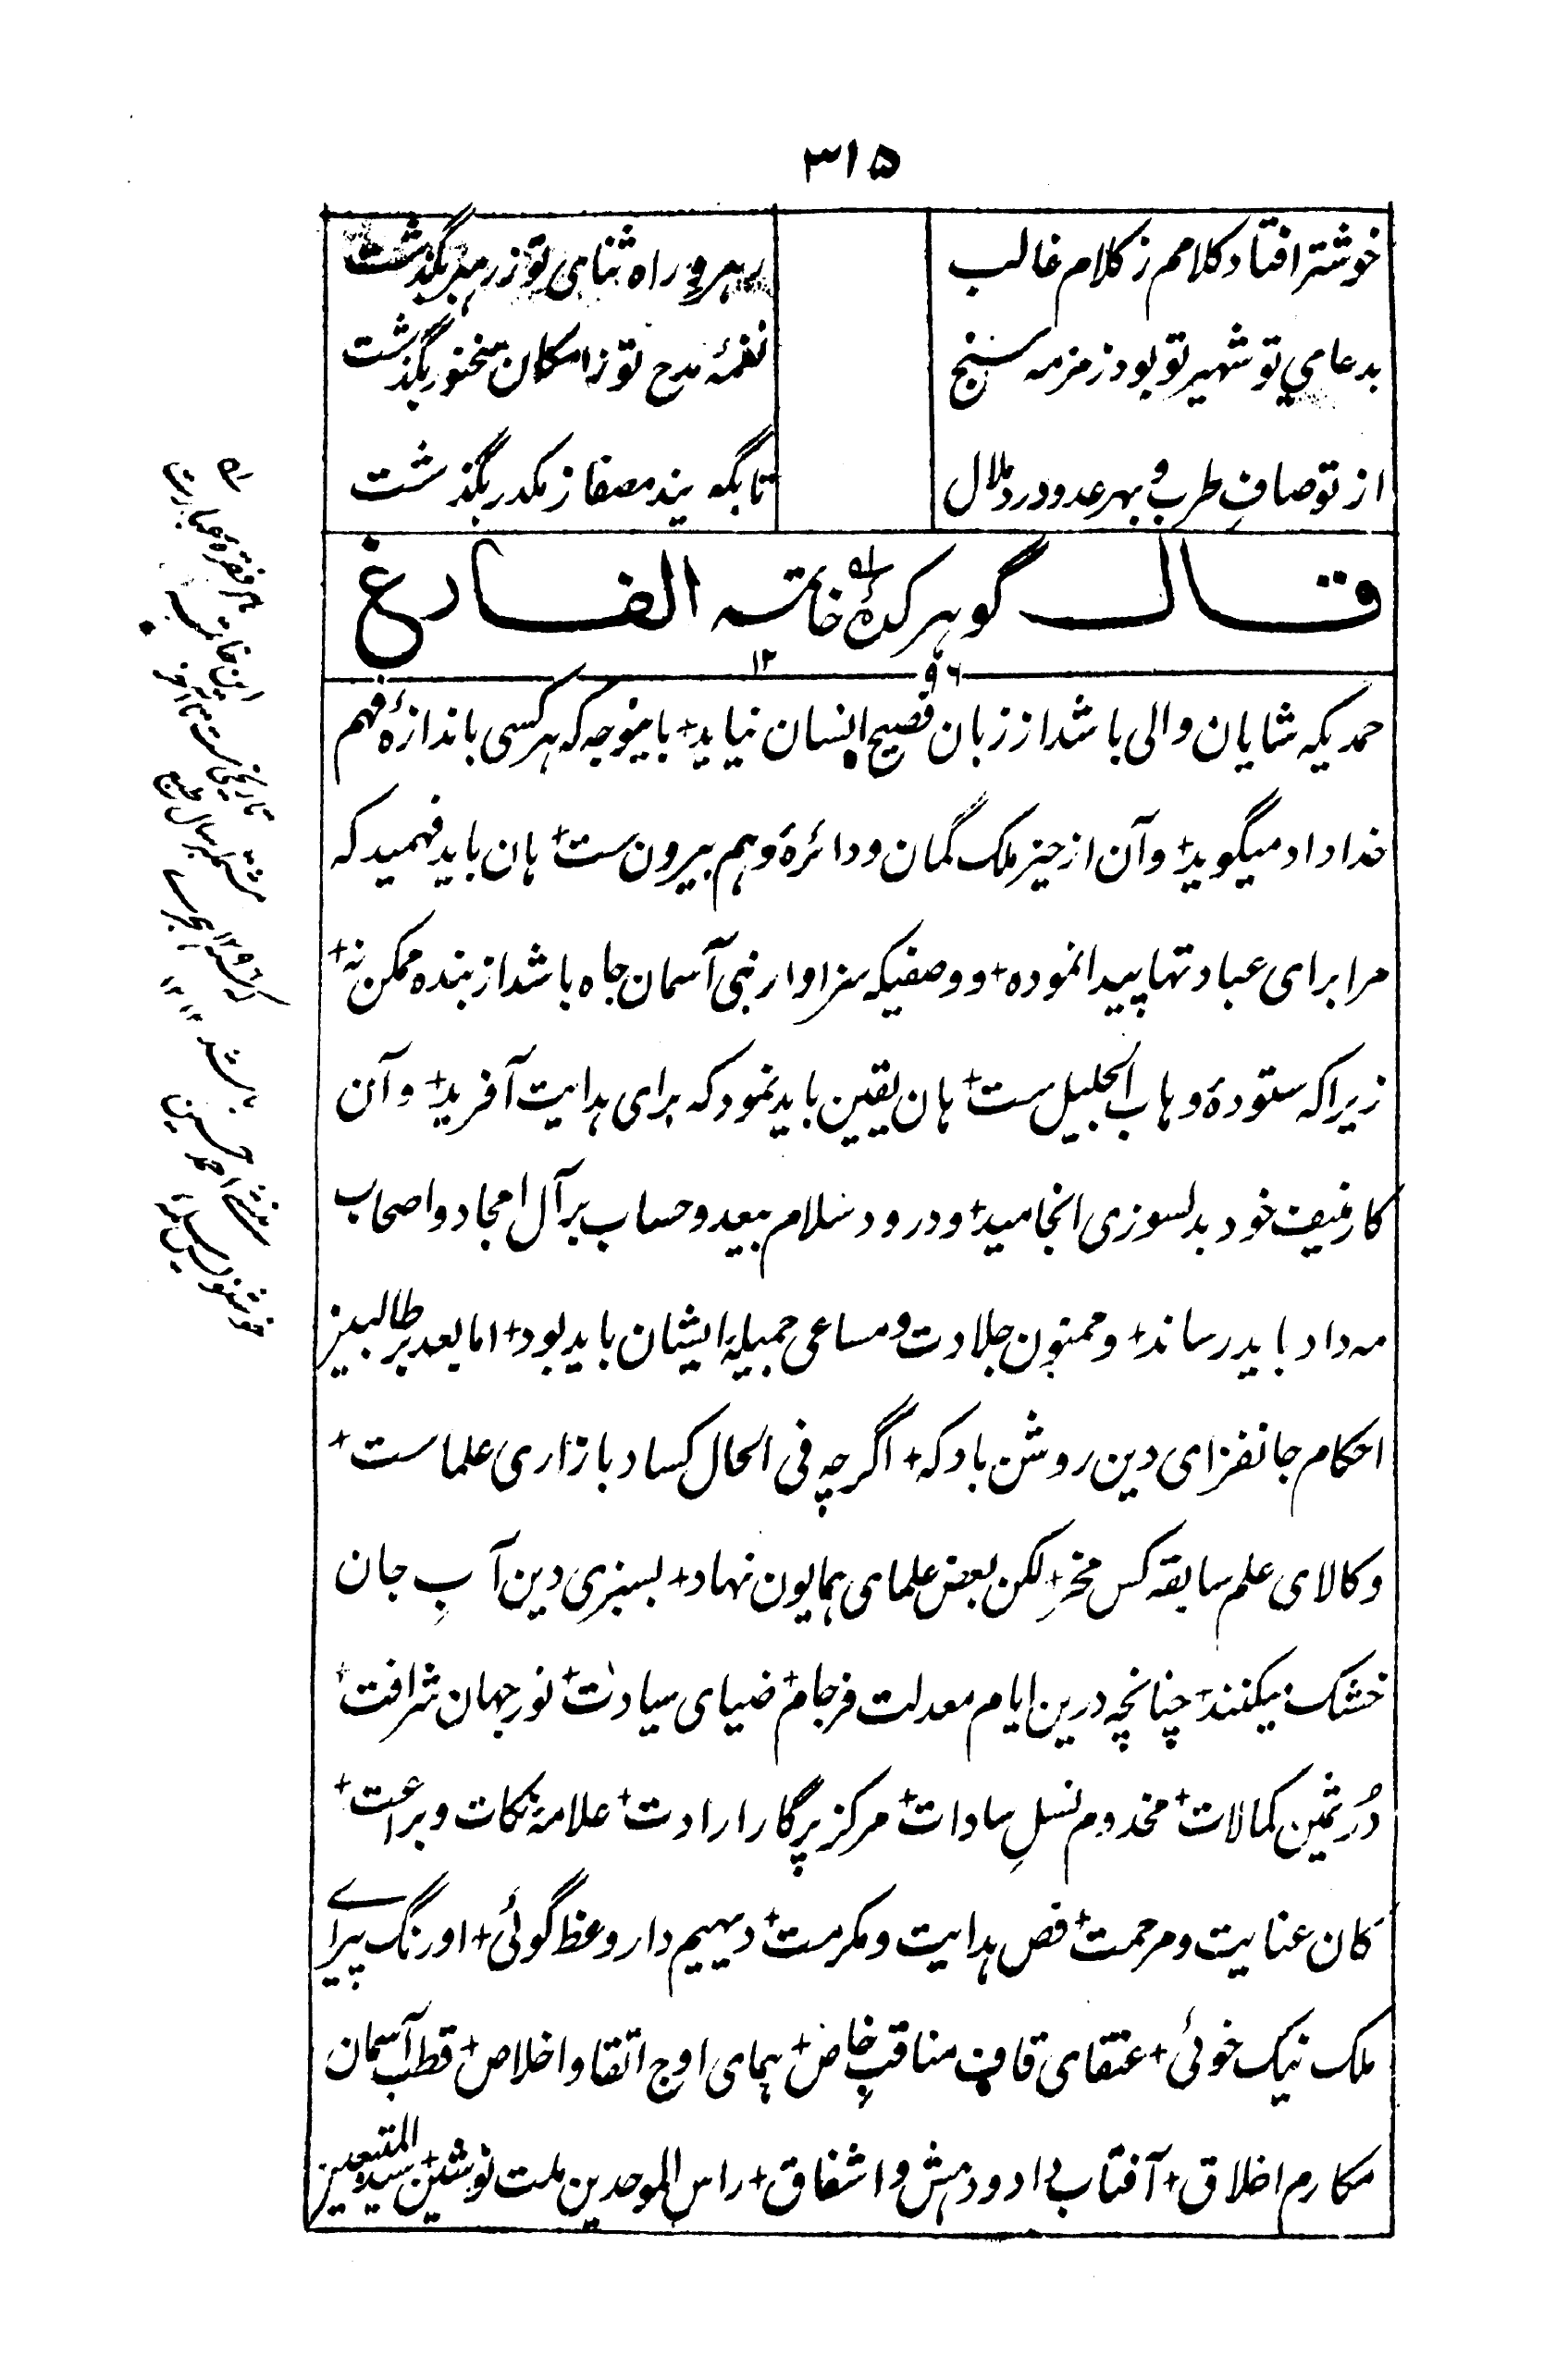 ۳۱۵
خوشتر افتاد کلامم ز کلام غالب رهرو راه ثنای تو ز رهبر بگذشت
بدعامی تو شهیر تو بود زمزمه سنج نغمهٔ مدح تو ز امکان سخنور بگذشت
از تو صافِ طرب و بهر عدو درد ملال تا بگویند مصفا ز مکدر بگذشت
قال گوهر کدهٔ خاتمه الفارغ
۱۲۹۶
حمدیکه شایان والی باشد از زبان فصیح انسان نیاید+ باینوجه که هر کسی باندازهٔ فهم
خداداد میگوید+ و آن از حیز ملک گمان و دائرهٔ وهم بیرون ست+ هان باید فهمید که
مرا برای عبادتها پیدا نموده+ و وصفیکه سزاوار نبی آسمان جاه باشد از بنده ممکن نه+
زیرا که ستودهٔ وهاب الجلیل ست+ هان یقین باید نمود که برای هدایت آفرید+ و آن
کار منیف خود بدلسوزی انجامید+ و درود سلام بیعد و حساب بر آل امجاد و اصحاب
مه داد باید رساند+ و ممنون جلادت و مساعی جمیلهٔ ایشان باید بود+ اما بعد بر طالبین
احکام جانفزای دین روشن باد که+ اگرچه فی الحال کساد بازاری علماست+
و کالای علم سابقه کس مخر+ لکن بعض علمای همایون نهاد+ بسبزی دین آبِ جان
خشک میکنند+ چنانچه درین ایام معدلت فرجام+ ضیای سیادت+ نور جهان شرافت+
دُر ثمین کمالات+ مخدوم نسلِ سادات+ مرکز پرگار ارادت+ علامهٔ نکات و براعت+
کان عنایت و مرحمت+ فص هدایت و مکرمت+ دیهیم دار وعظ گوئی+ اورنگ پیرای
ملک نیک خوئی+ عنقای قاف مناقبِ خاص+ همای اوج اتقا و اخلاص+ قطب آسمان
مکارم اخلاق+ آفتاب داد و دهش و اشفاق+ راس الموحدین ملت نوشین+ سید المتبعین